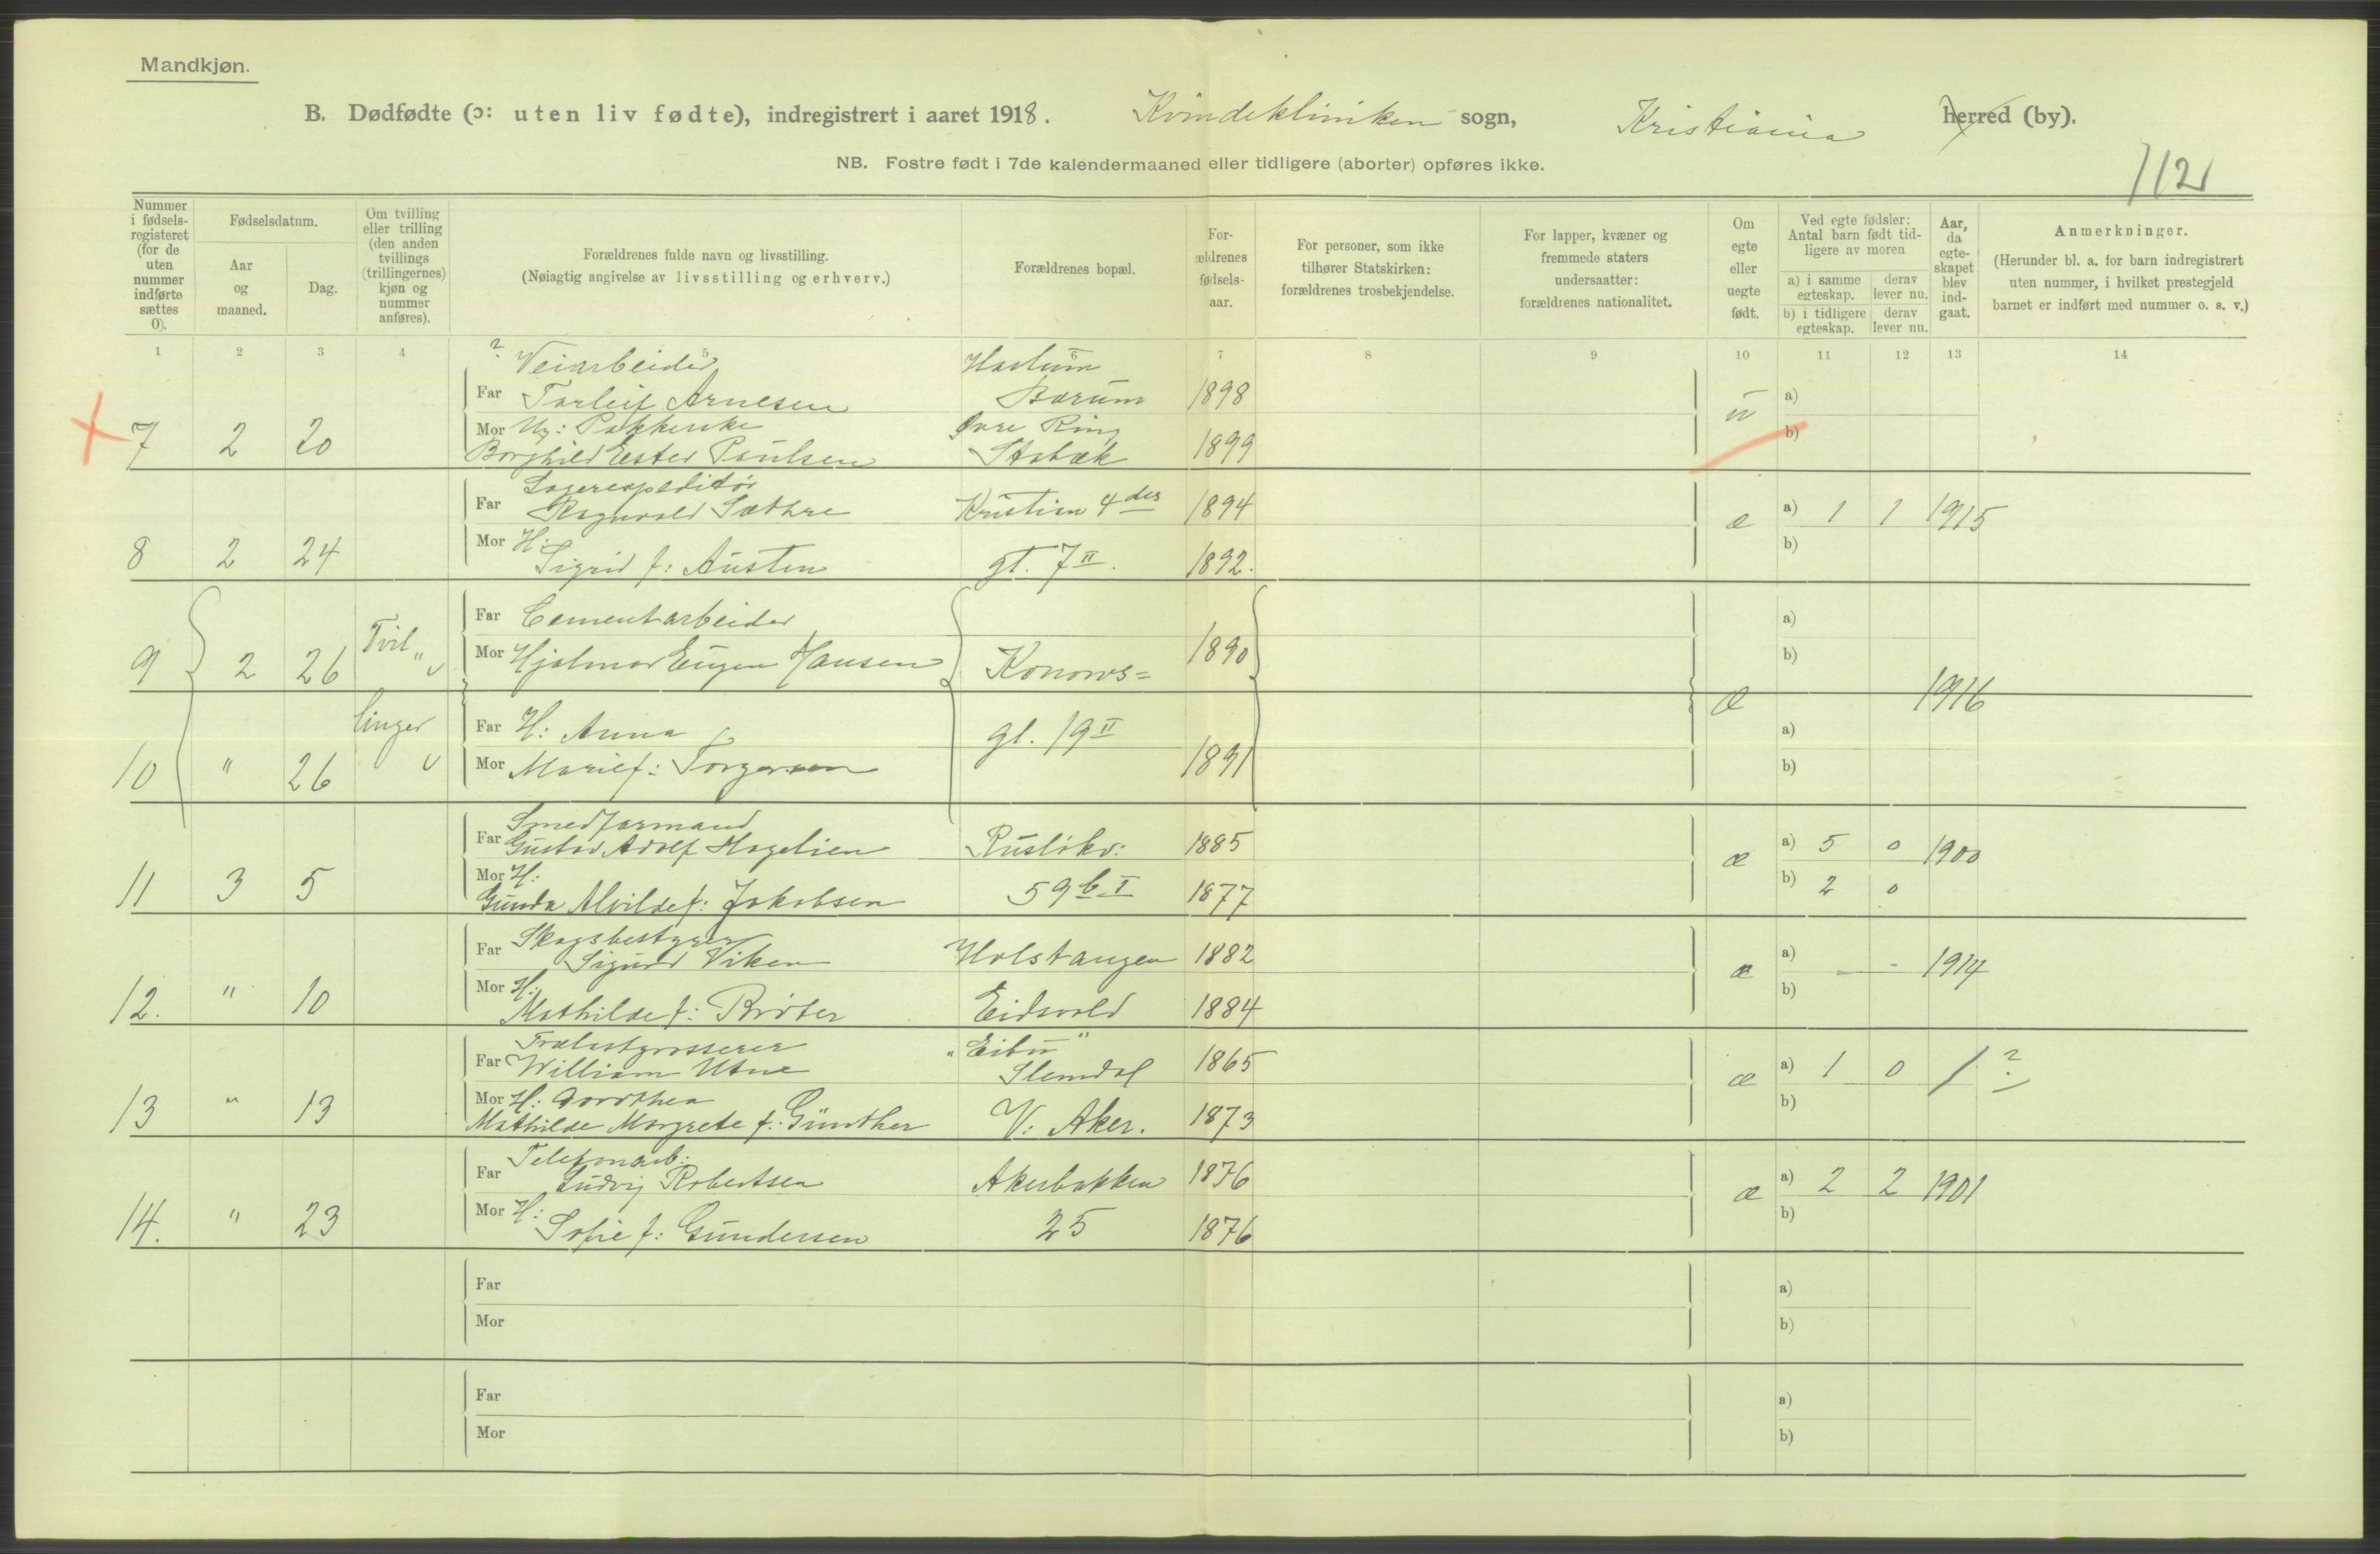 Mandkjøn.
B. Dødfødte (ɔ: uten liv fødte), indregistrert i aaret 1918. Kvindekliniken sogn, Kristiania herred (by).
NB. Fostre født i 7de kalendermaaned eller tidligere (aborter) opføres ikke.
112
Nummer i fødselsregisteret (for de uten nummer indførte sættes 0).
Fødselsdatum.
Aar og maaned.
Dag.
Om tvilling eller trilling (den anden tvillings (trillingernes) kjøn og nummer anføres).
Forældrenes fulde navn og livsstilling.
(Nøiagtig angivelse av livsstilling og erhverv.)
Forældrenes bopæl.
Forældrenes fødselsaar.
For personer, som ikke tilhører Statskirken: forældrenes trosbekjendelse.
For lapper, kvæner og fremmede staters undersaatter: forældrenes nationalitet.
Om egte eller uegte født.
Ved egte fødsler: Antal barn født tidligere av moren
a) i samme egteskap. derav lever nu.
b) i tidligere egteskap. derav lever nu.
Aar, da egteskapet blev indgaat.
Anmerkninger.
(Herunder bl. a. for barn indregistrert uten nummer, i hvilket prestegjeld barnet er indført med nummer o. s. v.)
1 2 3 4 5 6 7 8 9 10 11 12 13 14
? Veiarbeider Haslum
Far Torleif Arnesen Bærum 1898 a)
Mor Ug: Pakkerske Øvre Ring u
7 2 20 Borghild Ester Paulsen Stabæk 1899 b)
Lagerexpeditør
Far Ragnvald Sæthre Kristian 4 des 1894 æ a) 1 1 1915
Mor H:
8 2 24 Sigrid f: Austen gt. 7 II. 1892. b)
Far Cementarbeider a)
9 2 26 Tvil " Mor Hjalmar Eugen Hansen Konows= 1890 b)
æ 1916
linger Far H: Anna gt. 19 II a)
10 " 26 Mor Marie f: Torgersen 1891 b)
Smedformand
Far Gustav Adolf Hagelien Rusløkv: 1885 æ a) 5 0 1900
Mor H:
11 3 5 Gunda Alvilde f: Jakobsen 59 b I 1877 b) 2 0
Skogsbestyrer
Far Sigurd Viken Holstangen 1882 æ a) - - 1914
Mor H:
12. " 10 Mathilde f: Brøter Eidsvold 1884 b)
Trælastgrosserer "Eibu"
Far William Utne Slemdal 1865 æ a) 1 0 1 ?
Mor H: Dorothea
13 " 13 Mathilde Margrete f: Günther V: Aker. 1873 b)
Telefonarb:
Far Ludvig Robertsen Akersbakken 1876 æ a) 2 2 1901
Mor H:
14. " 23 Sofie f: Gundersen 25 1876 b)
Far a)
Mor b)
Far a)
Mor b)